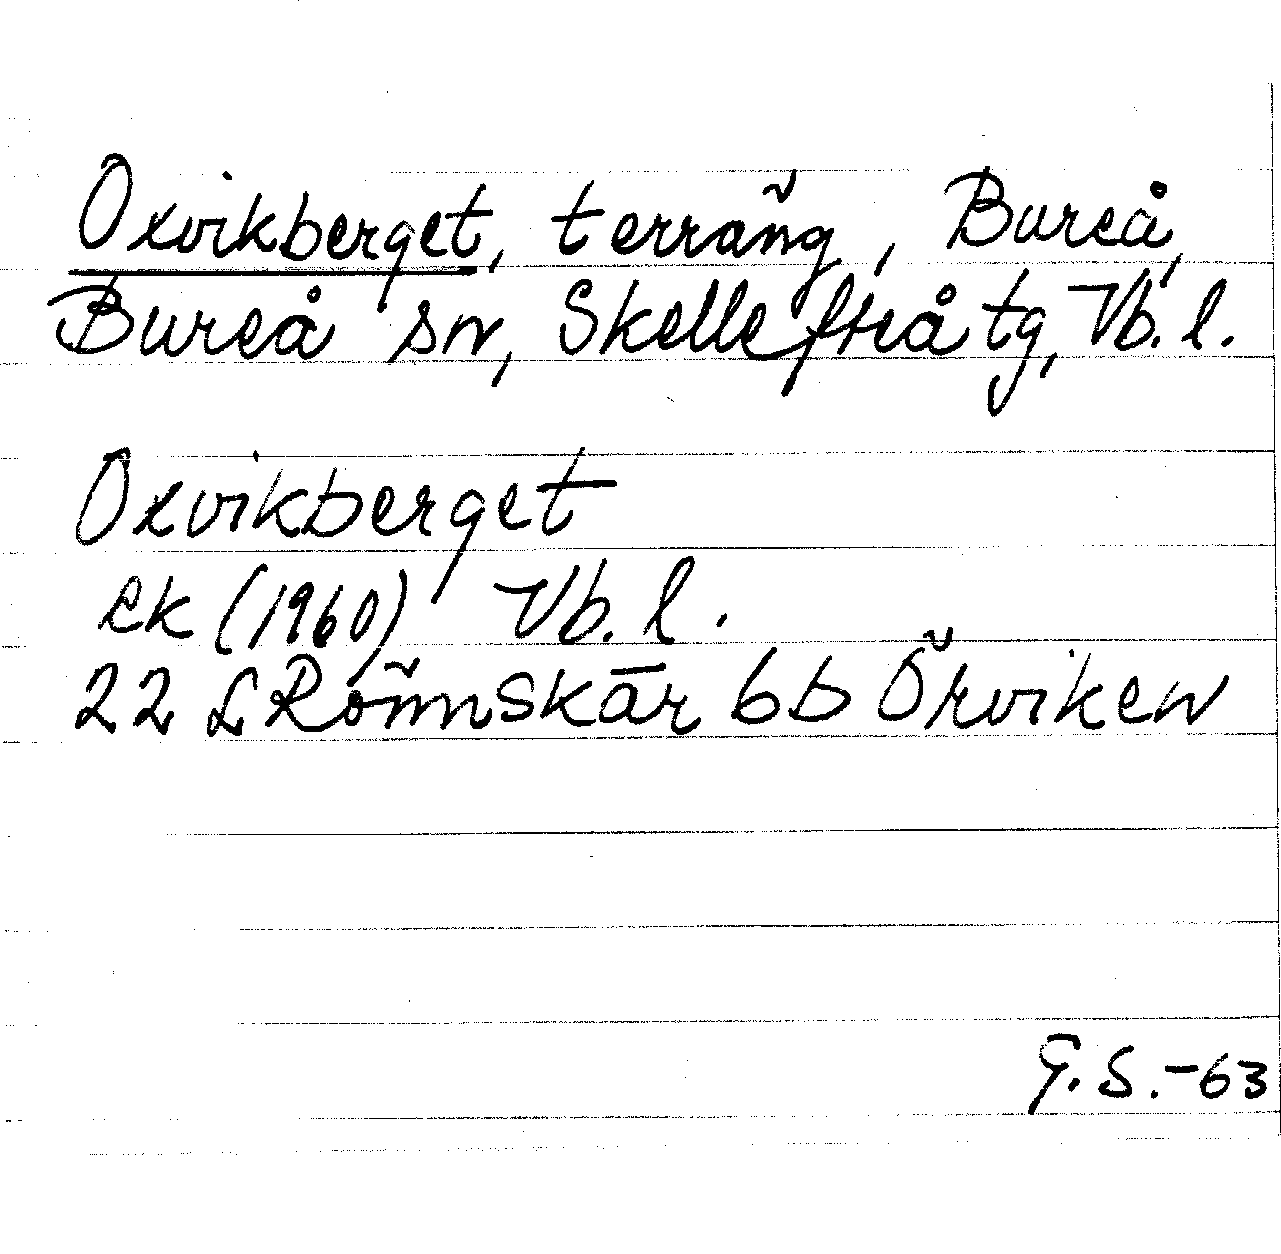 Oxvikberget, terräng, Bureå,
Bureå sn, Skellefteå tg, Vb. l.
Oxvikberget
ek (1960) Vb. l.
22 L Rönnskär 6b Örviken
G. S. -63